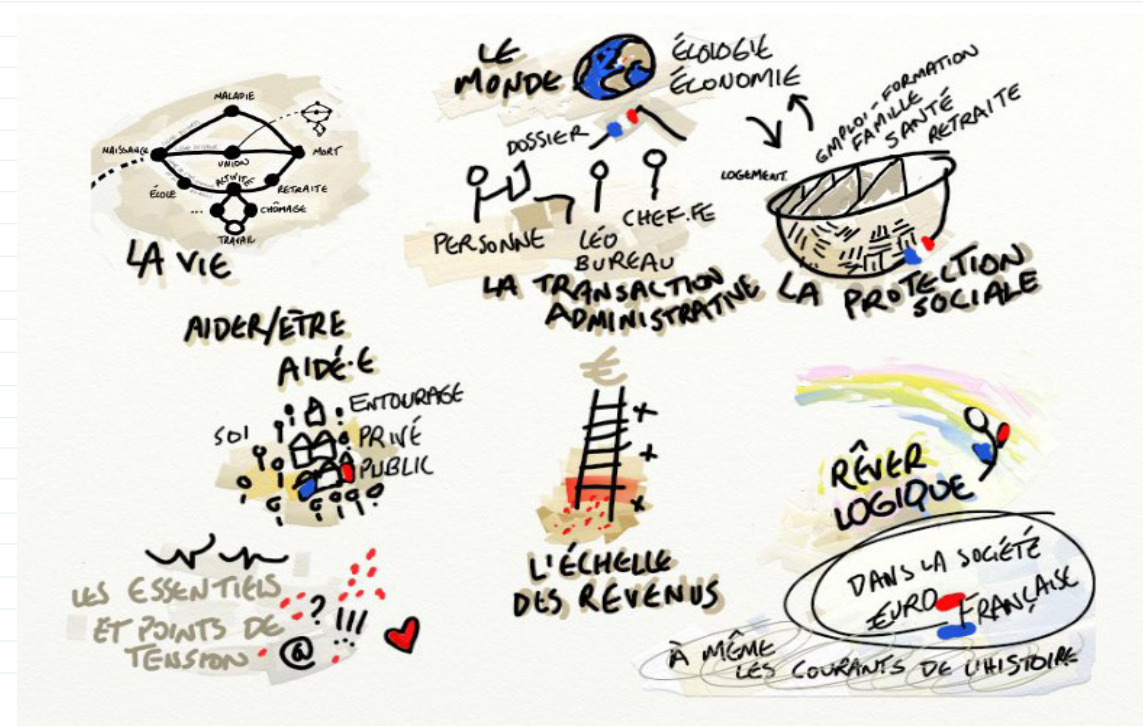 MALADIE
NAISSANCE
UNION
MORT
ÉCOLE
ACTIVITÉ
RETRAITE
...
CHÔMAGE
TRAVAIL
LA VIE
LE
MONDE
ÉCOLOGIE
ÉCONOMIE
DOSSIER
PERSONNE
LÉO
BUREAU
CHEF.FE
LA TRANSACTION
ADMINISTRATIVE
LOGEMENT
EMPLOI-FORMATION
FAMILLE
SANTÉ
RETRAITE
LA PROTECTION
SOCIALE
AIDER/ÊTRE
AIDÉ·E
SOI
ENTOURAGE
PRIVÉ
PUBLIC
€
+
+
x
L'ÉCHELLE
DES REVENUS
RÊVER
LOGIQUE
LES ESSENTIELS
ET POINTS DE
TENSION
? !!!
@
DANS LA SOCIÉTÉ
EURO FRANÇAISE
À MÊME
LES COURANTS DE L'HISTOIRE